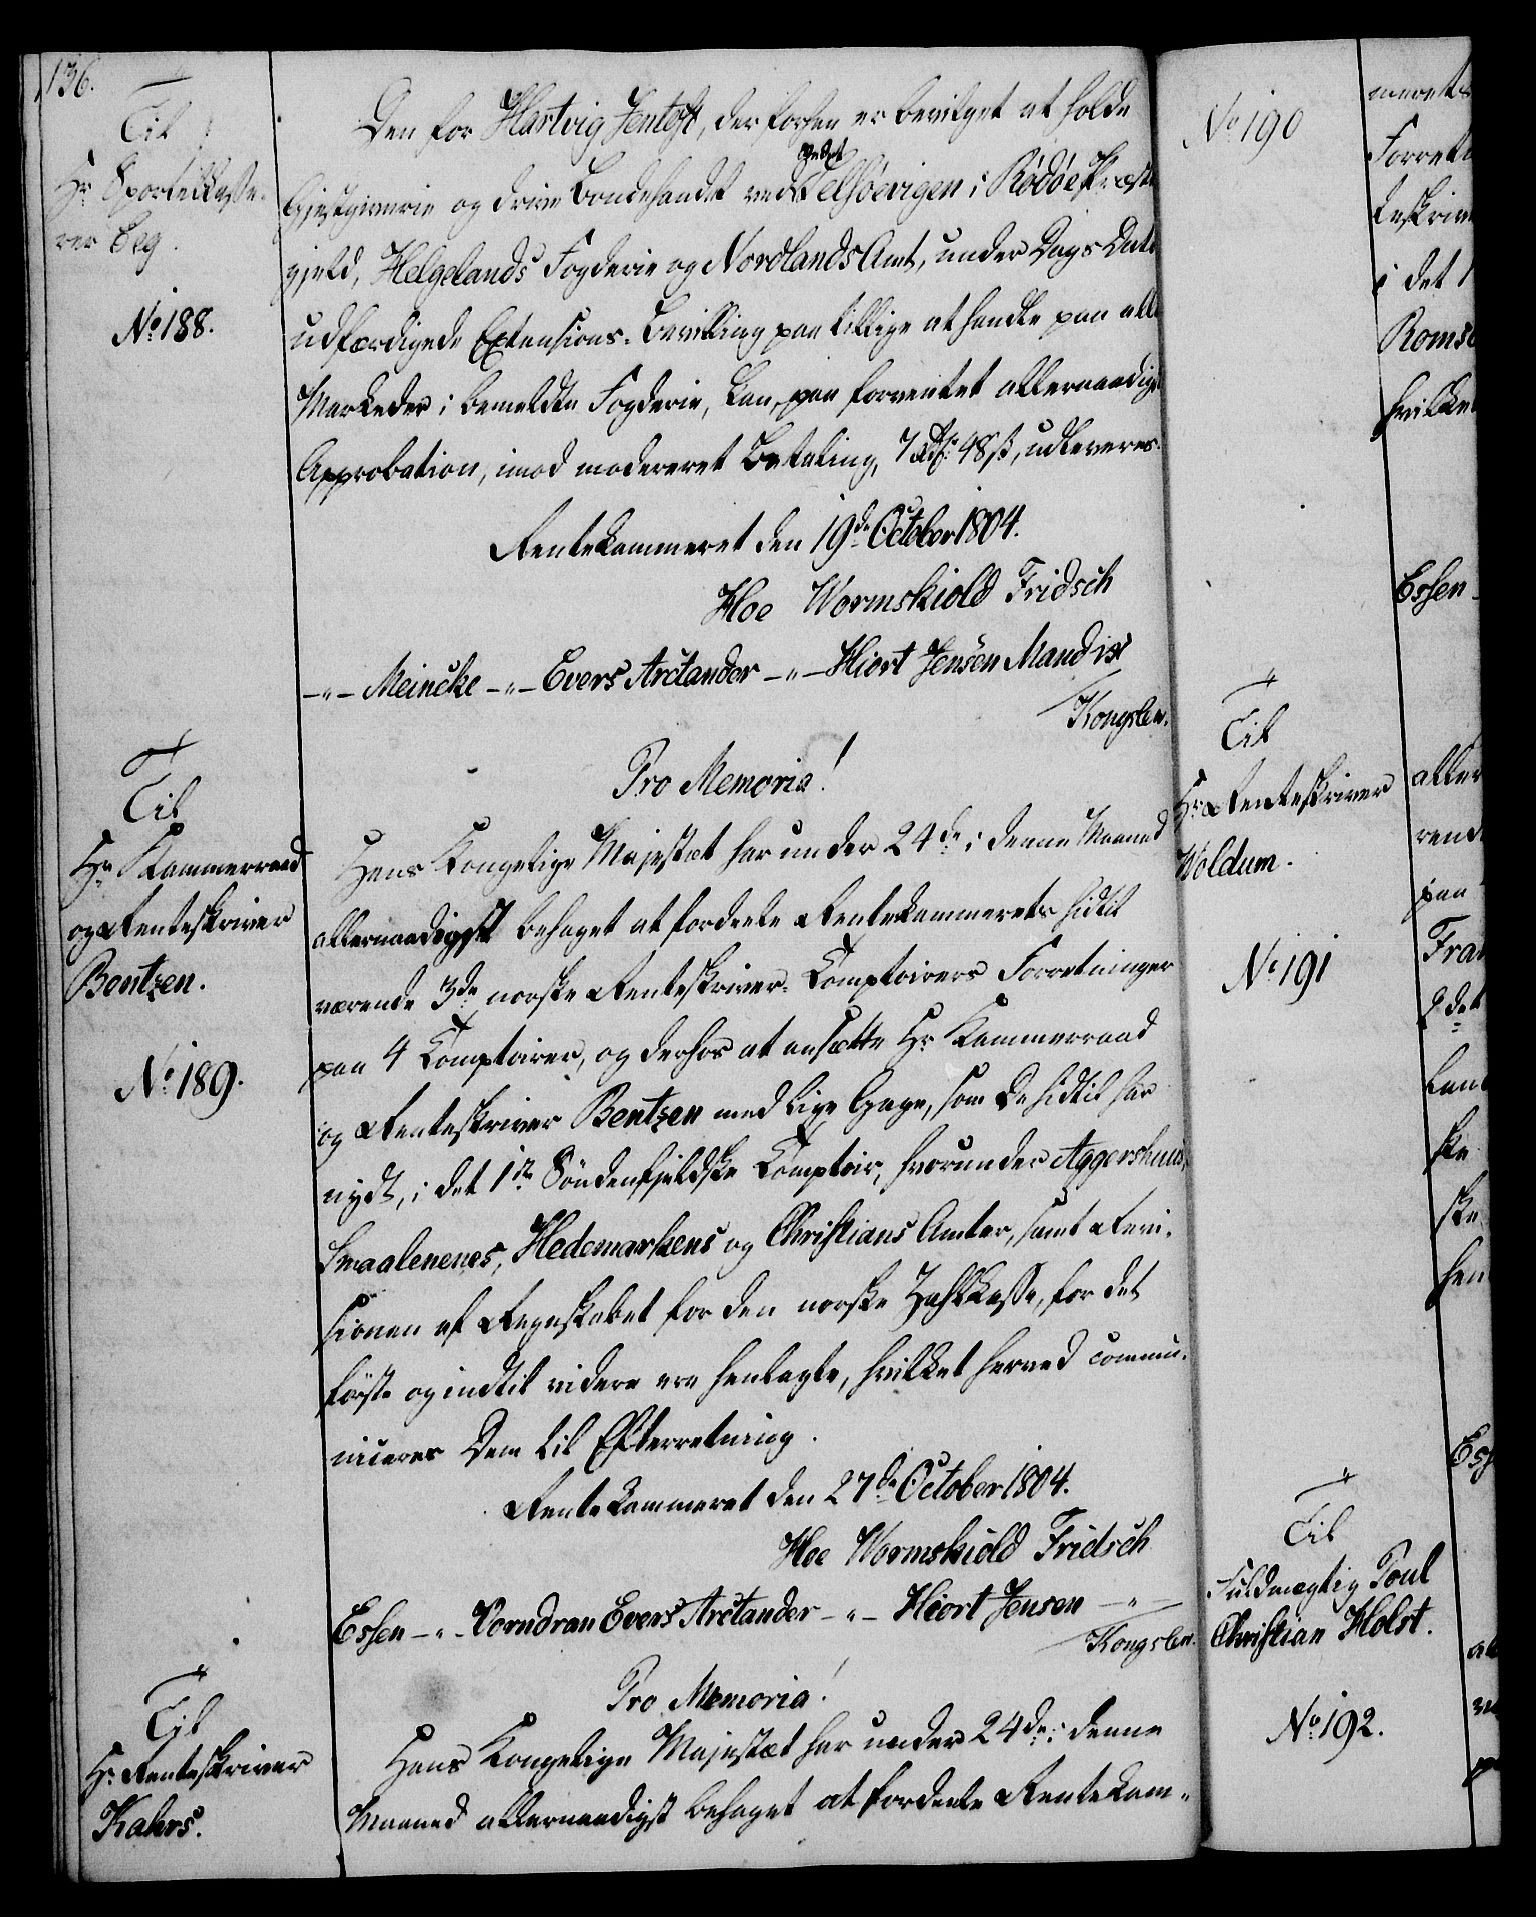 136.
Til
Hr. Sportelkasse-
rer Beg.
No. 188.
Den for Hartvig Jentoft, der forhen er bevilget at holde
Giestgiverie og drive Bondehandel ved Selsöevigen i Rödöe Præste-
gjeld, Helgelands Fogderie og Nordlands Amt, under Dags Dato
udfærdigede Extensions-Bevilling paa tillige at handle paa alle
Markeder i bemeldte Fogderie, kan, paa forventet allernaadigst
Approbation, imod modereret Betaling, 7 Rdlr. 48 ß, udleveres.
Rentekammeret den 19de October 1804.
Hoe Wormskiold Fridsch
-"- Meincke -"- Evers Arctander -"- Hiort Jensen Mandix
Kongslew.
Til
Hr. Kammerraad
og Renteskriver
Bentzen.
No. 189.
Pro Memoria!
Hans Kongelige Majestæt har under 24de i denne Maaned
allernaadigst behaget at fordeele Rentekammerets hidtil
værende 3de norske Renteskriver-Comptoirers Forretninger
paa 4 Comptoirer, og derhos at ansætte Hr. Kammerraad
og Renteskriver Bentzen med lige Gage, som De hidtil har
nydt, i det 1ste Söndenfjeldske Comptoir, hvorunder Aggershuus,
Smaalenenes, Hedemarkens og Christians Amter, samt Revi-
sionen af Regnskabet for den norske Zahlkasse, for det
förste og indtil videre ere henlagte, hvilket herved commu-
niceres Dem til Efterretning.
Rentekammeret den 27de October 1804.
Hoe Wormskiold Fridsch
Essen -"- Vorndran Evers Arctander -"- Hiort Jensen -"-
Kongslew.
Til
Hr. Renteskriver
Kahrs.
Pro Memoria!
Hans Kongelige Majestæt har under 24de i denne
Maaned allernaadigst behaget at fordeele Rentekam-
No. 190
merets
Forretn
teskriv
i det 1
Romsd
hvilke
Essen -
Til
Hr. Renteskriver
Woldum.
No. 191
aller
rend
paa
Fra
2det
Lan
ske
ske
hen
Ess
Til
Fuldmægtig Poul
Christian Holst.
No. 192.
al